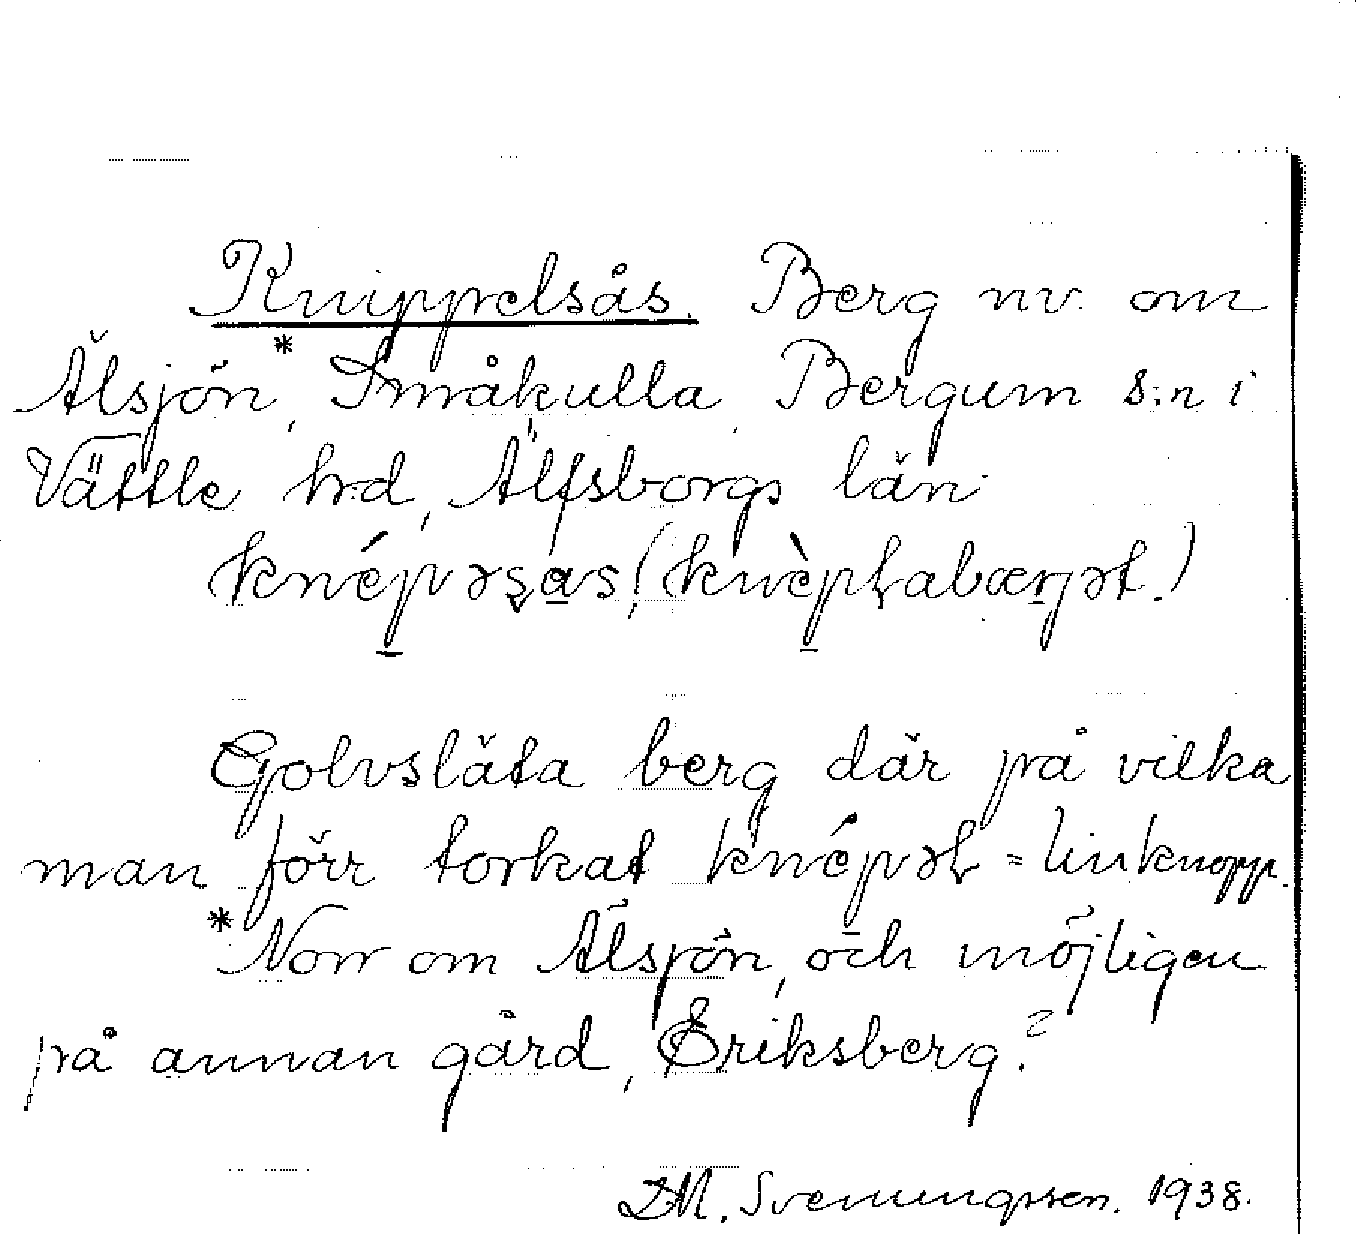 Knippelsås. Berg nv. om
Älsjön*, Småkulla, Bergum s:n i
Vättle hd, Älfsborgs län
knépəʂas, (knèpɭabærjət.)
Golvsläta berg där på vilka
man förr torkat knépəɭ = linknopp.
*Norr om Älsjön, och möjligen
på annan gård, Eriksberg?
Svenungssen. 1938.